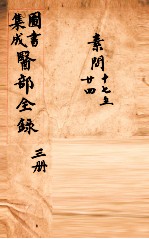 素問 十七至
廿四
圖書
集成
醫部全錄
三册